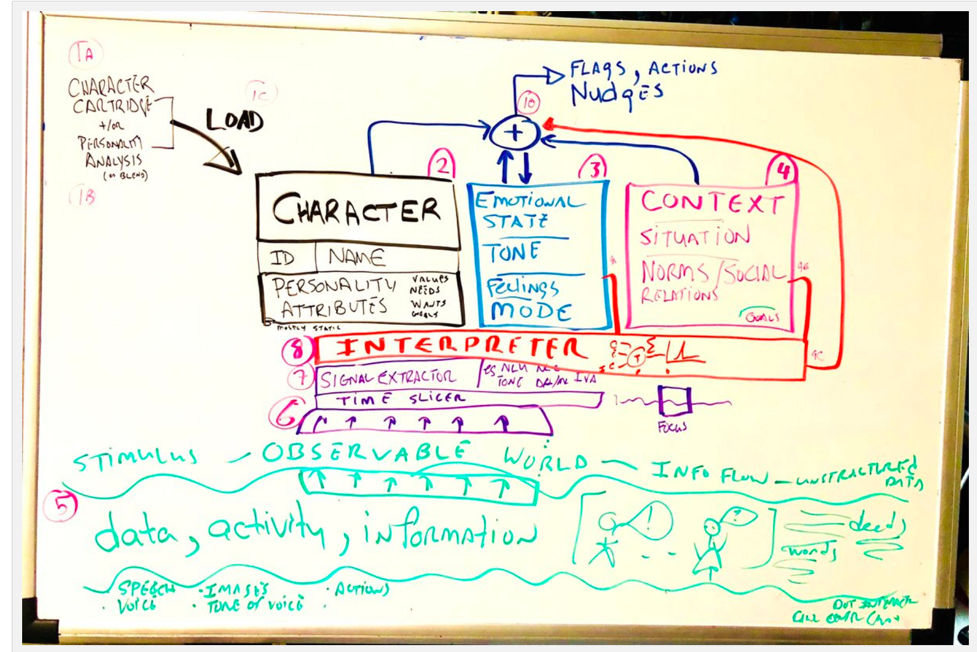 1A
CHARACTER
CARTRIDGE
+/OR
PERSONALITY
ANALYSIS
(OR BLEND)
1B
1C
LOAD
FLAGS, ACTIONS
NUDGES
10
+
2
CHARACTER
ID NAME
PERSONALITY
ATTRIBUTES
VALUES
NEEDS
WANTS
GOALS
MOSTLY STATIC
3
EMOTIONAL
STATE
TONE
FEELINGS
MODE
4
CONTEXT
SITUATION
NORMS/SOCIAL
RELATIONS
GOALS
9C
8
INTERPRETER
7
SIGNAL EXTRACTOR
TONE
TIME SLICER
6
FOCUS
STIMULUS – OBSERVABLE WORLD – INFO FLOW – UNSTRUCTURED
DATA
5
data, activity, information
!
?
deeds
words
SPEECH · IMAGES · ACTIONS
· VOICE · TONE OF VOICE ·